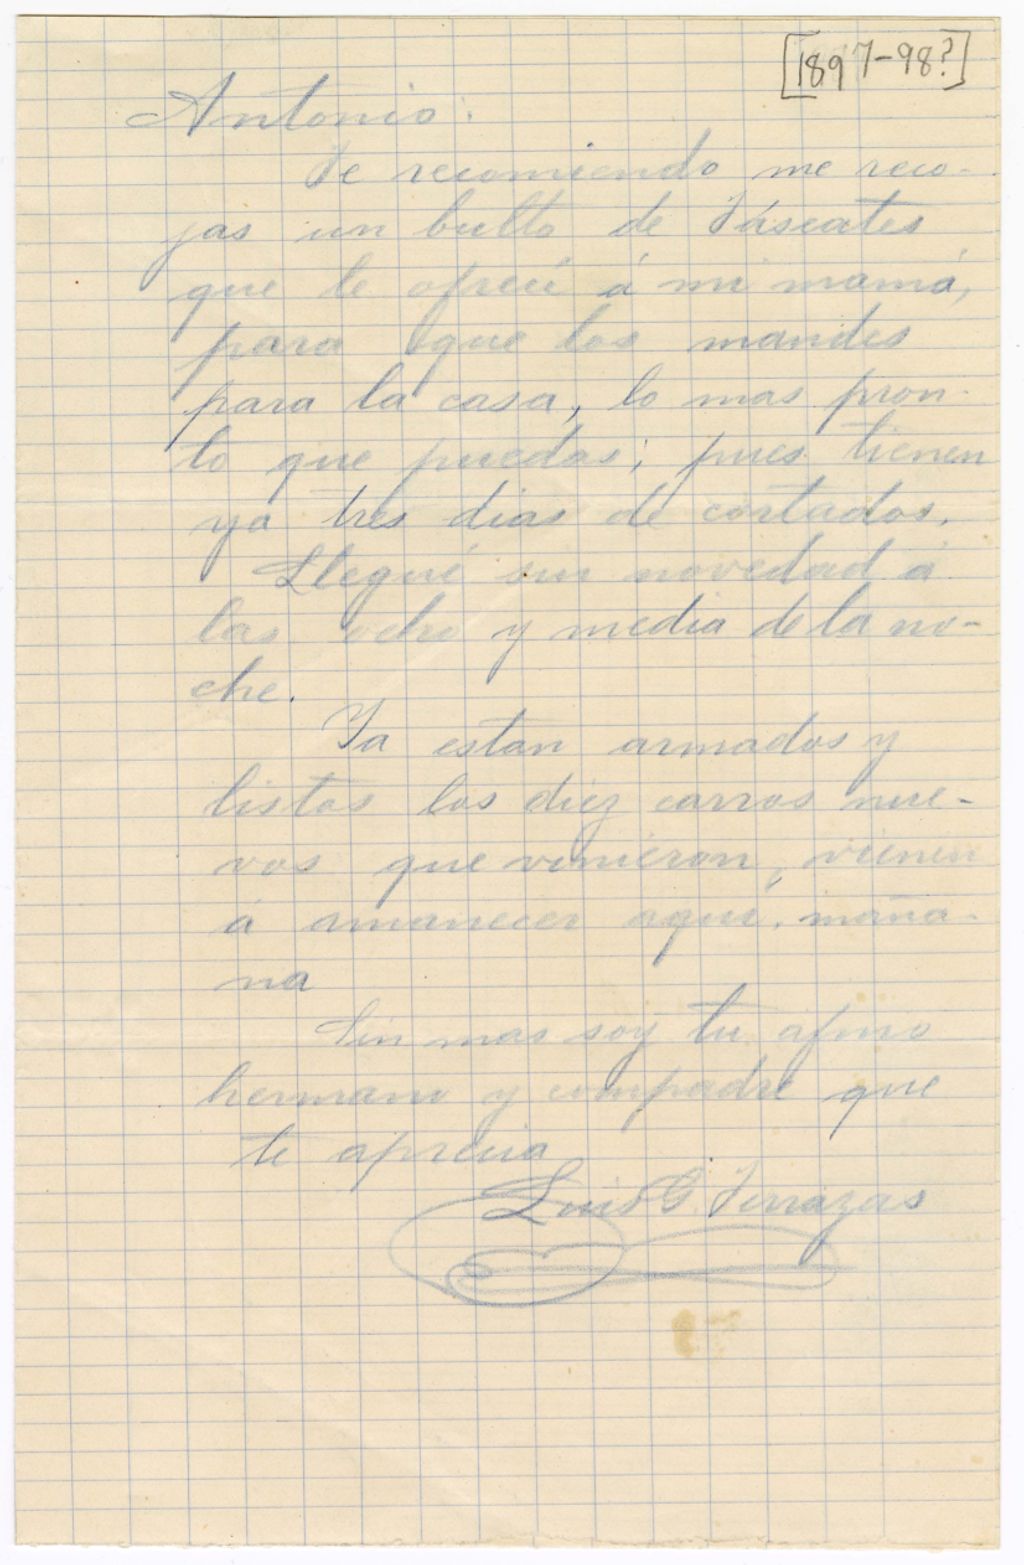 [1897-98?]
Antonio:
Te recomiendo me reco-
jas un bulto de Táscates
que le ofrecí á mi mamá,
para que los mandes
para la casa, lo mas pron-
to que puedas; pues tienen
ya tres dias de cortados.
Llegué sin novedad á
las ocho y media de la no-
che.
Ya estan armados y
listos los diez carros nue-
vos que vinieron, vienen
á amanecer aquí, maña-
na
Sin mas soy tu afmo
hermano y compadre que
te aprecia
Luis G. Terrazas